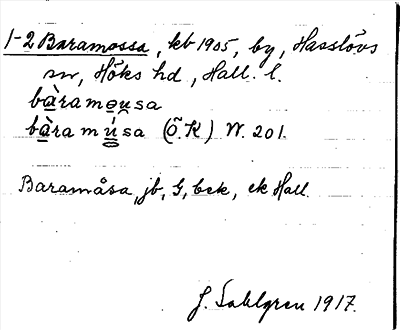 1-2 Baramossa, kb 1905, by, Hasslövs
sn, Höks hd, Hall. l.
bàramo̲u̲sa
bàramúsa (Ö.K) W. 201.
Baramåsa, jb, G, bek, ek Hall.
J. Sahlgren 1917.